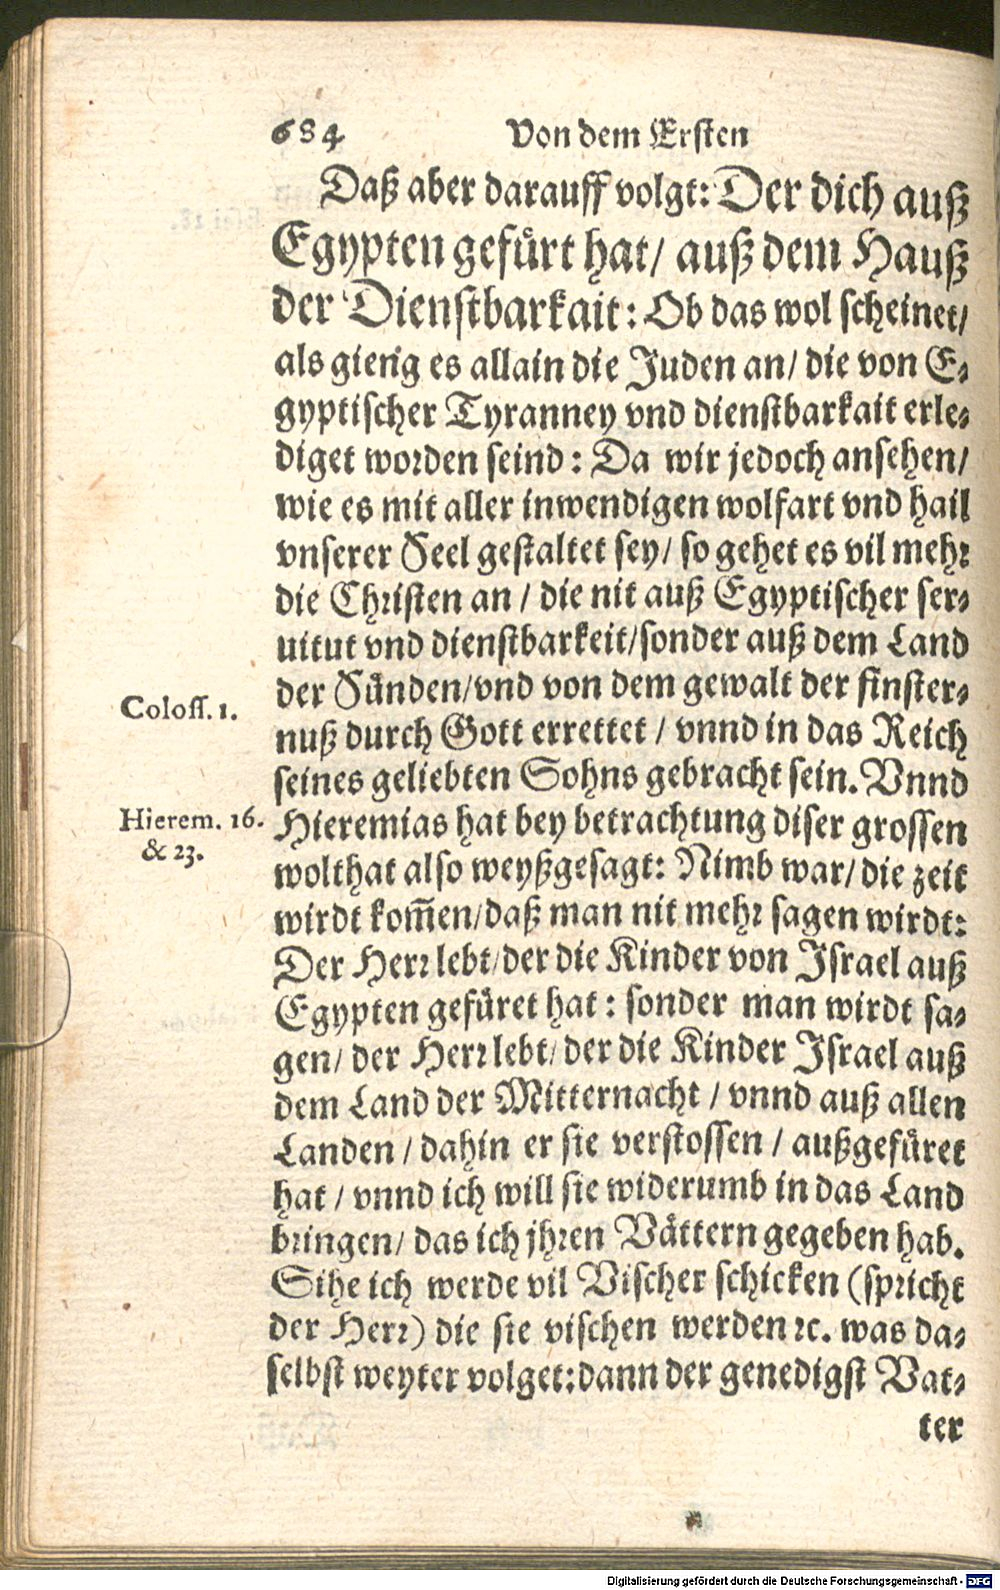 684 Von dem Ersten
Daß aber darauff volgt: Der dich auß
Egypten gefürt hat/ auß dem Hauß
der Dienstbarkait: Ob das wol scheinet/
als gieng es allain die Juden an/ die von E-
gyptischer Tyranney vnd dienstbarkait erle-
diget worden seind: Da wir jedoch ansehen/
wie es mit aller inwendigen wolfart vnd hail
vnserer Seel gestaltet sey/ so gehet es vil mehr
die Christen an / die nit auß Egyptischer ser-
uitut vnd dienstbarkeit/sonder auß dem Land
der Sünden/vnd von dem gewalt der finster-
Coloss. 1.
nuß durch Gott errettet / vnnd in das Reich
seines geliebten Sohns gebracht sein. Vnnd
Hierem. 16.
& 23.
Hieremias hat bey betrachtung diser grossen
wolthat also weyßgesagt: Nimb war/ die zeit
wirdt kom̄en/daß man nit mehr sagen wirdt:
Der Herr lebt/der die Kinder von Israel auß
Egypten gefüret hat : sonder man wirdt sa-
gen/ der Herr lebt/ der die Kinder Israel auß
dem Land der Mitternacht / vnnd auß allen
Landen / dahin er sie verstossen / außgefüret
hat / vnnd ich will sie widerumb in das Land
bringen/ das ich jhren Vättern gegeben hab.
Sihe ich werde vil Vischer schicken (spricht
der Herr) die sie vischen werden ꝛc. was da-
selbst weyter volget:dann der genedigst Vat-
ter
Digitalisierung gefördert durch die Deutsche Forschungsgemeinschaft - DFG